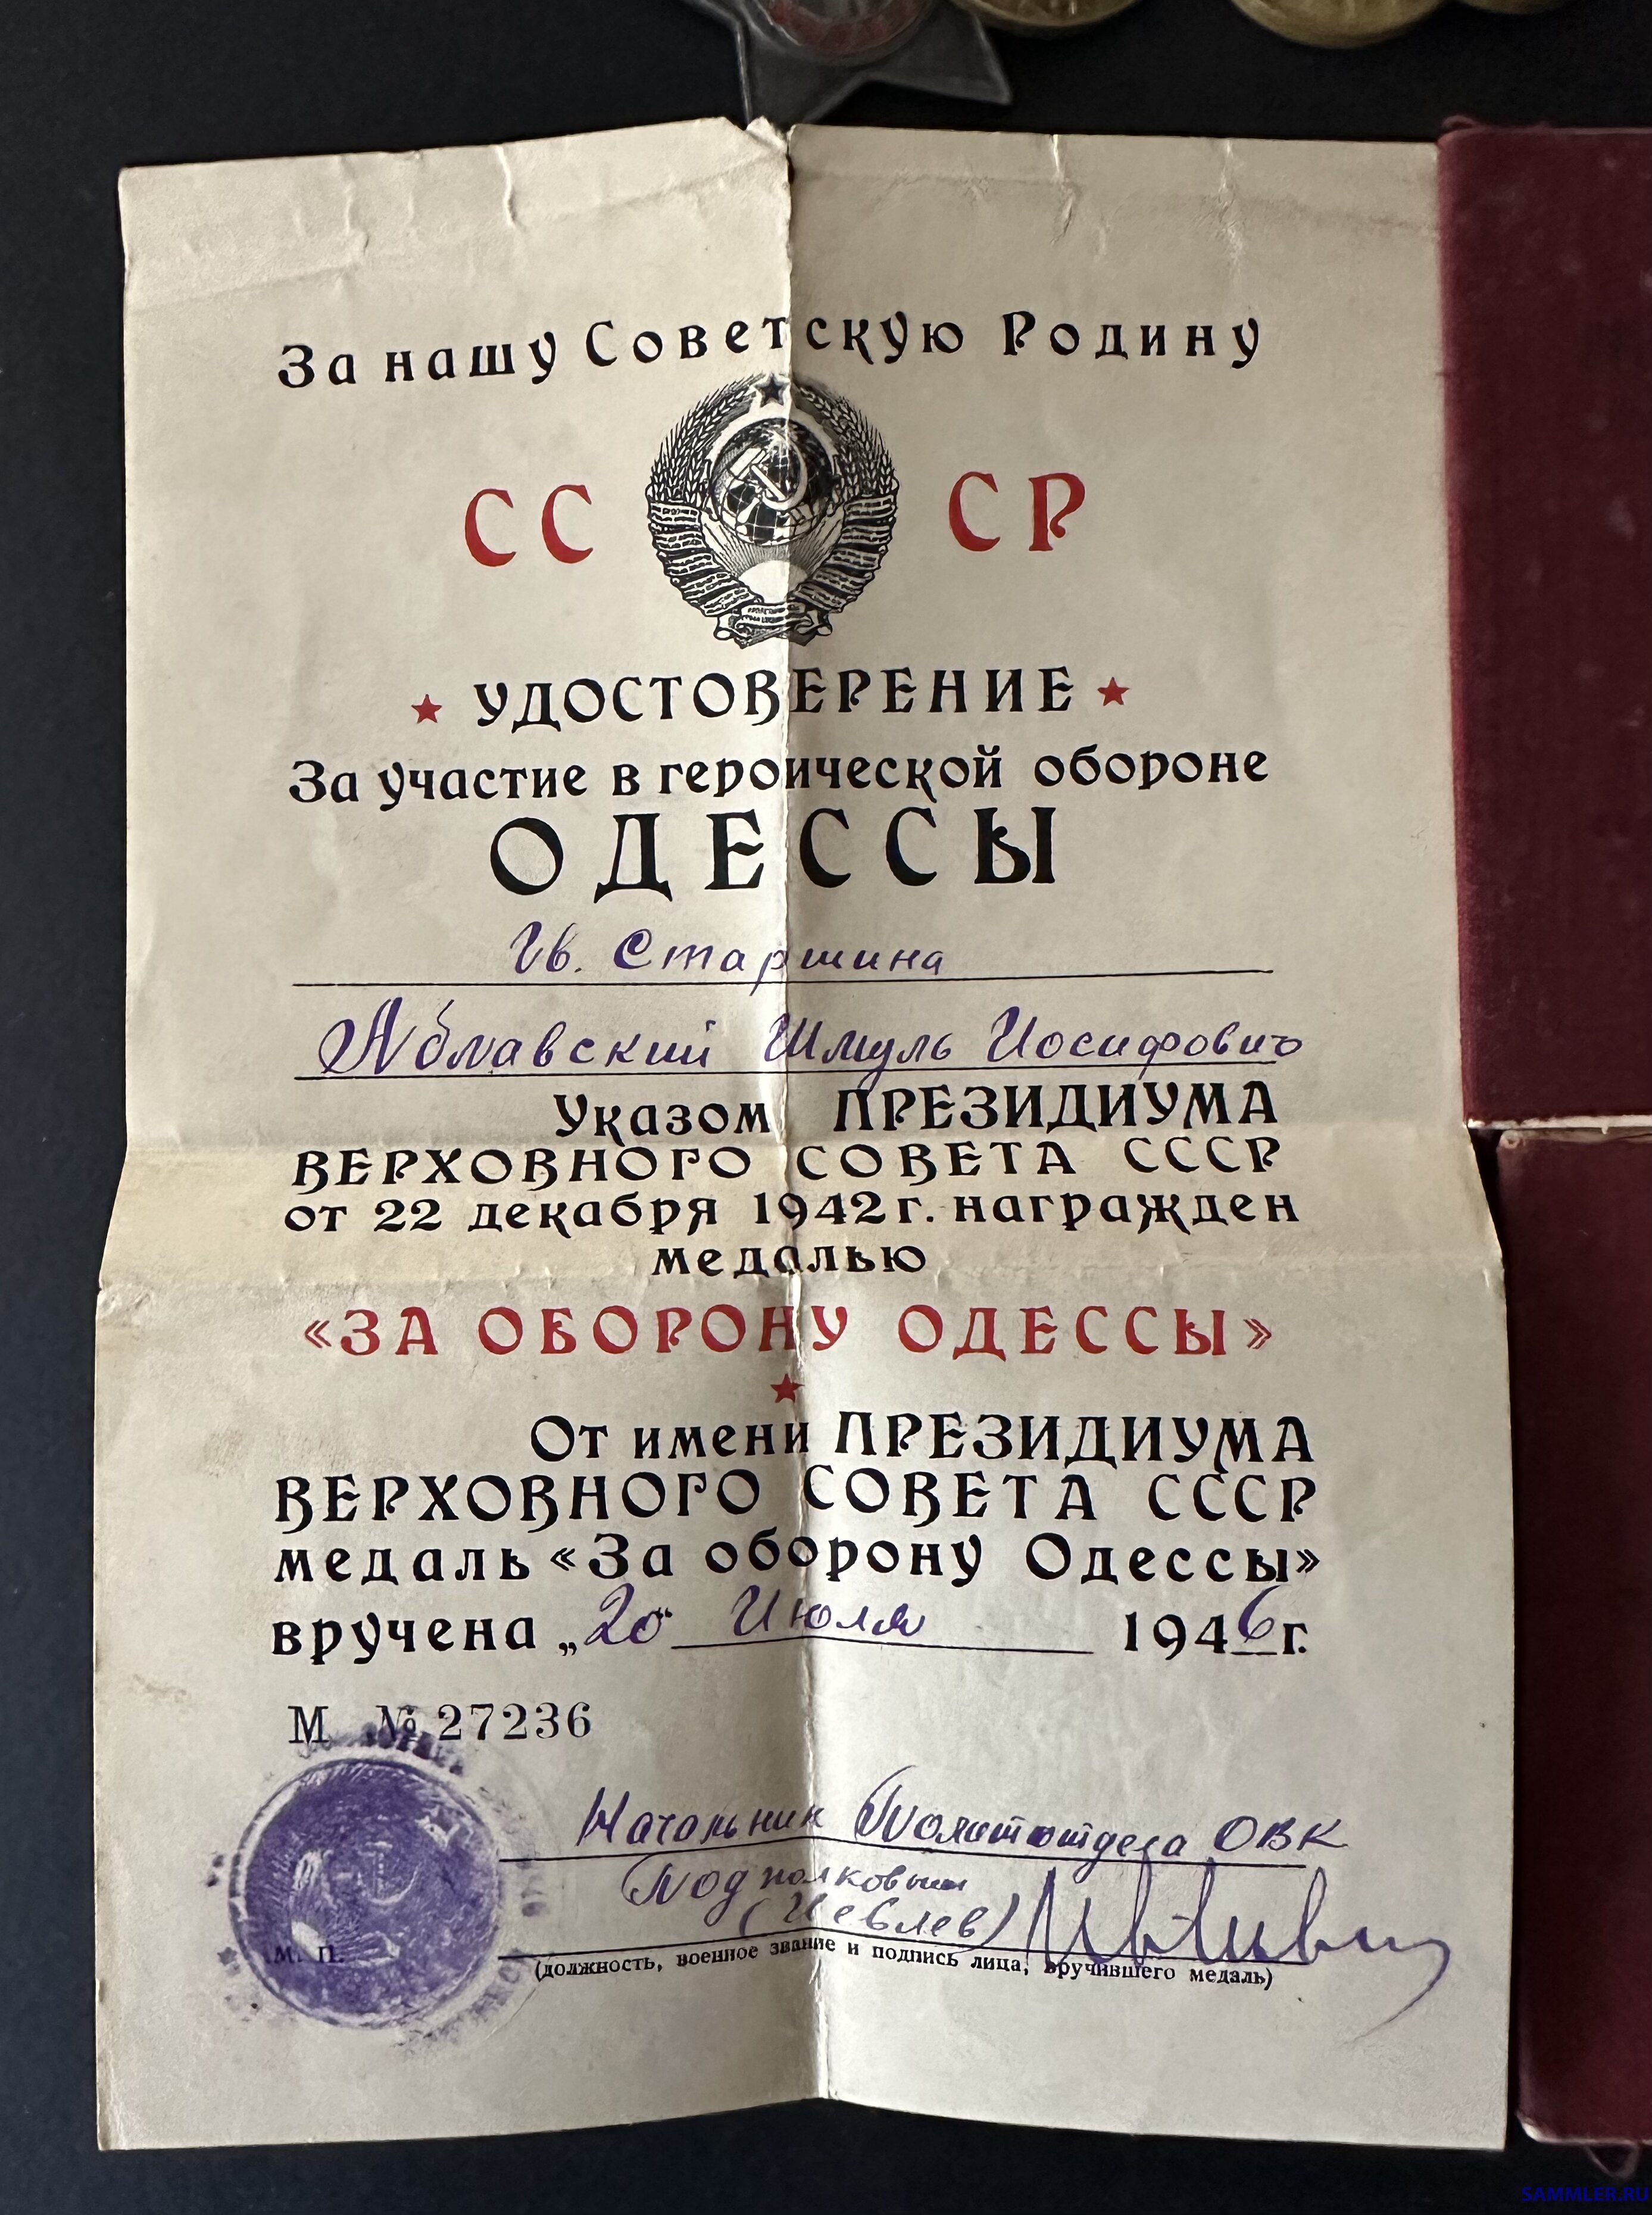 За нашу Советскую Родину
СС СР
УДОСТОВЕРЕНИЕ
За участие в героической обороне
ОДЕССЫ
Гв. Старшина
Аблавский Шмуль Иосифович
Указом ПРЕЗИДИУМА
ВЕРХОВНОГО СОВЕТА СССР
от 22 декабря 1942 г. награжден
медалью
«ЗА ОБОРОНУ ОДЕССЫ»
От имени ПРЕЗИДИУМА
ВЕРХОВНОГО СОВЕТА СССР
медаль «За оборону Одессы»
вручена „20“ Июля 1946 г.
М № 27236
Начальник Политотдела ОВК
Подполковник
(Иевлев)
М. П.
(должность, военное звание и подпись лица, вручившего медаль)
SAMMLER.RU